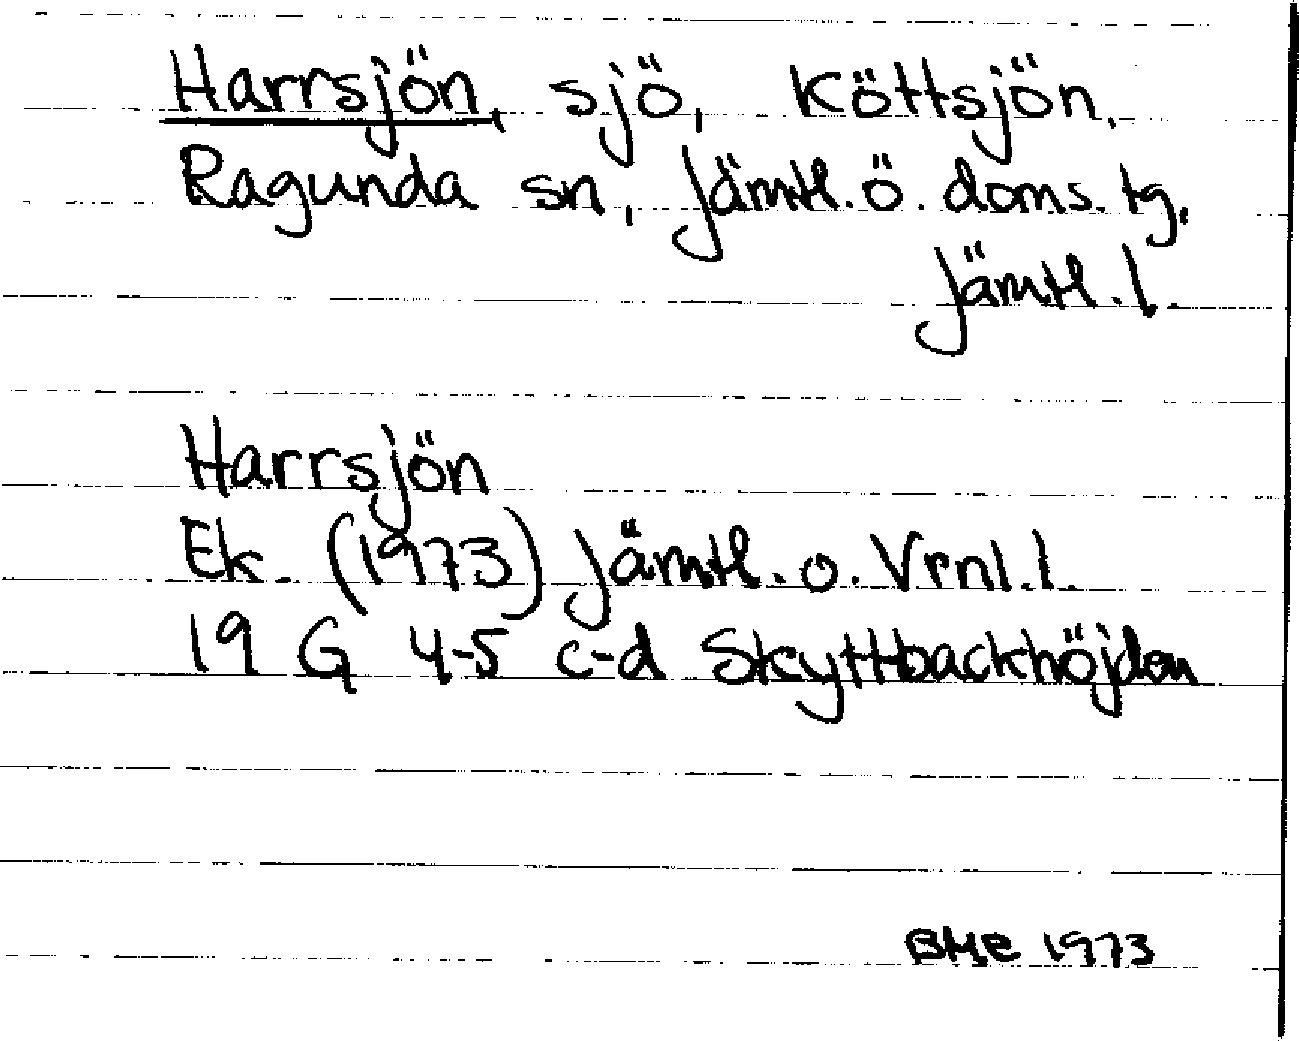 Harrsjön, sjö, Köttsjön,
Ragunda sn, Jämtl. ö. doms. tg,
Jämtl. l.
Harrsjön
Ek. (1973) Jämtl. o. Vrnl. l.
19 G 4-5 c-d Skyttbackhöjden
BHE 1973